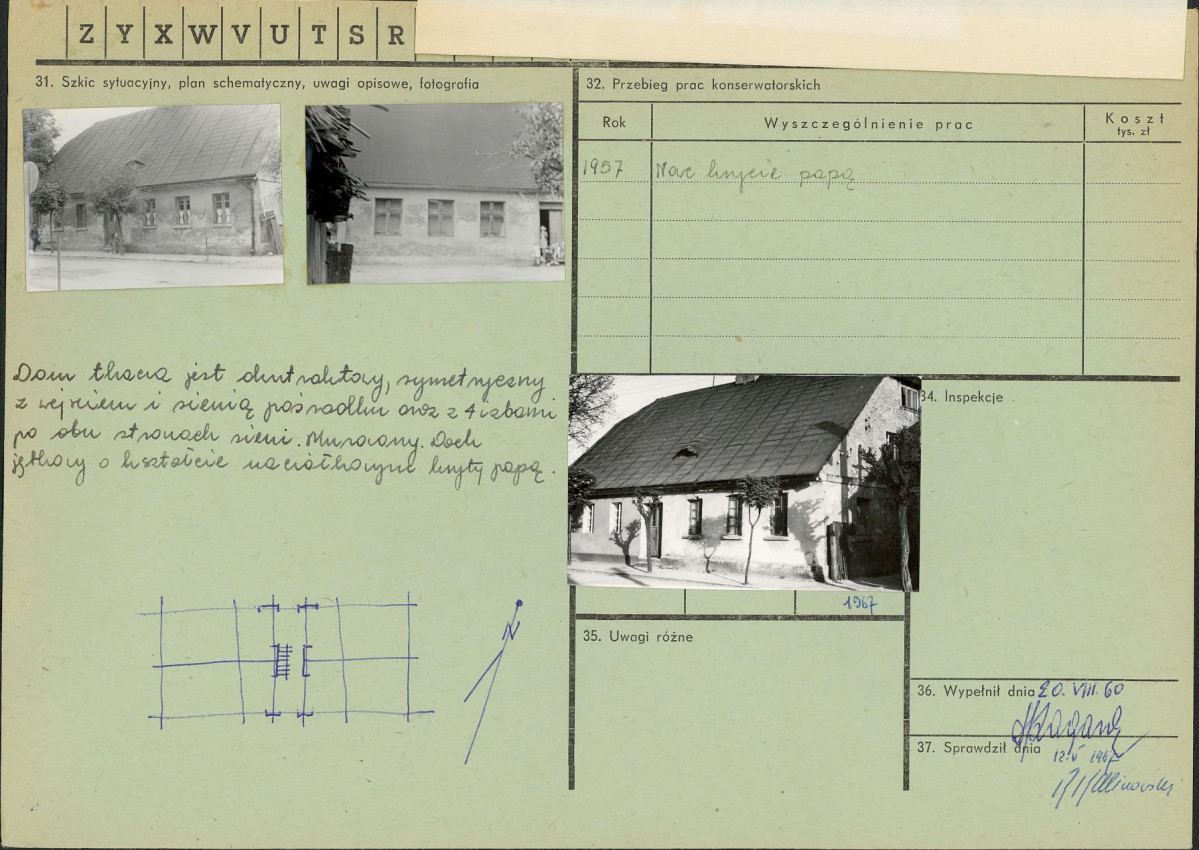 Z Y X W V U T S R
31. Szkic sytuacyjny, plan schematyczny, uwagi opisowe, fotografia
Dom tkacza jest dwutraktowy, symetryczny
z wejściem i sienią pośrodku oraz z 4 izbami
po obu stronach sieni. Murowany. Dach
jętkowy o kształcie naciółkowym kryty papą.
N
32. Przebieg prac konserwatorskich
Rok Wyszczególnienie prac Koszt
tys. zł
1957 krycie papą
34. Inspekcje
1967
35. Uwagi różne
36. Wypełnił dnia 20. VIII. 60
37. Sprawdził dnia
12 V 1967